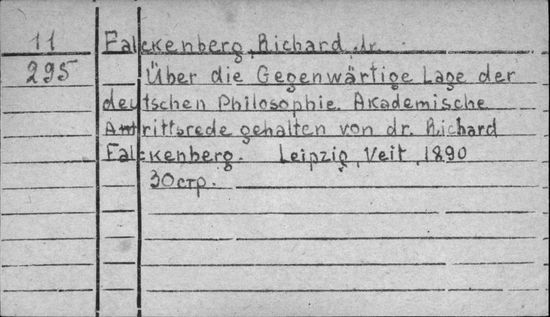 11 Falckenberg, Richard, dr.
295 Über die Gegenwärtige Lage der
deutschen Philosophie. Akademische
Antrittsrede gehalten von dr. Richard
Falckenberg. Leipzig, Veit, 1890
30 стр.